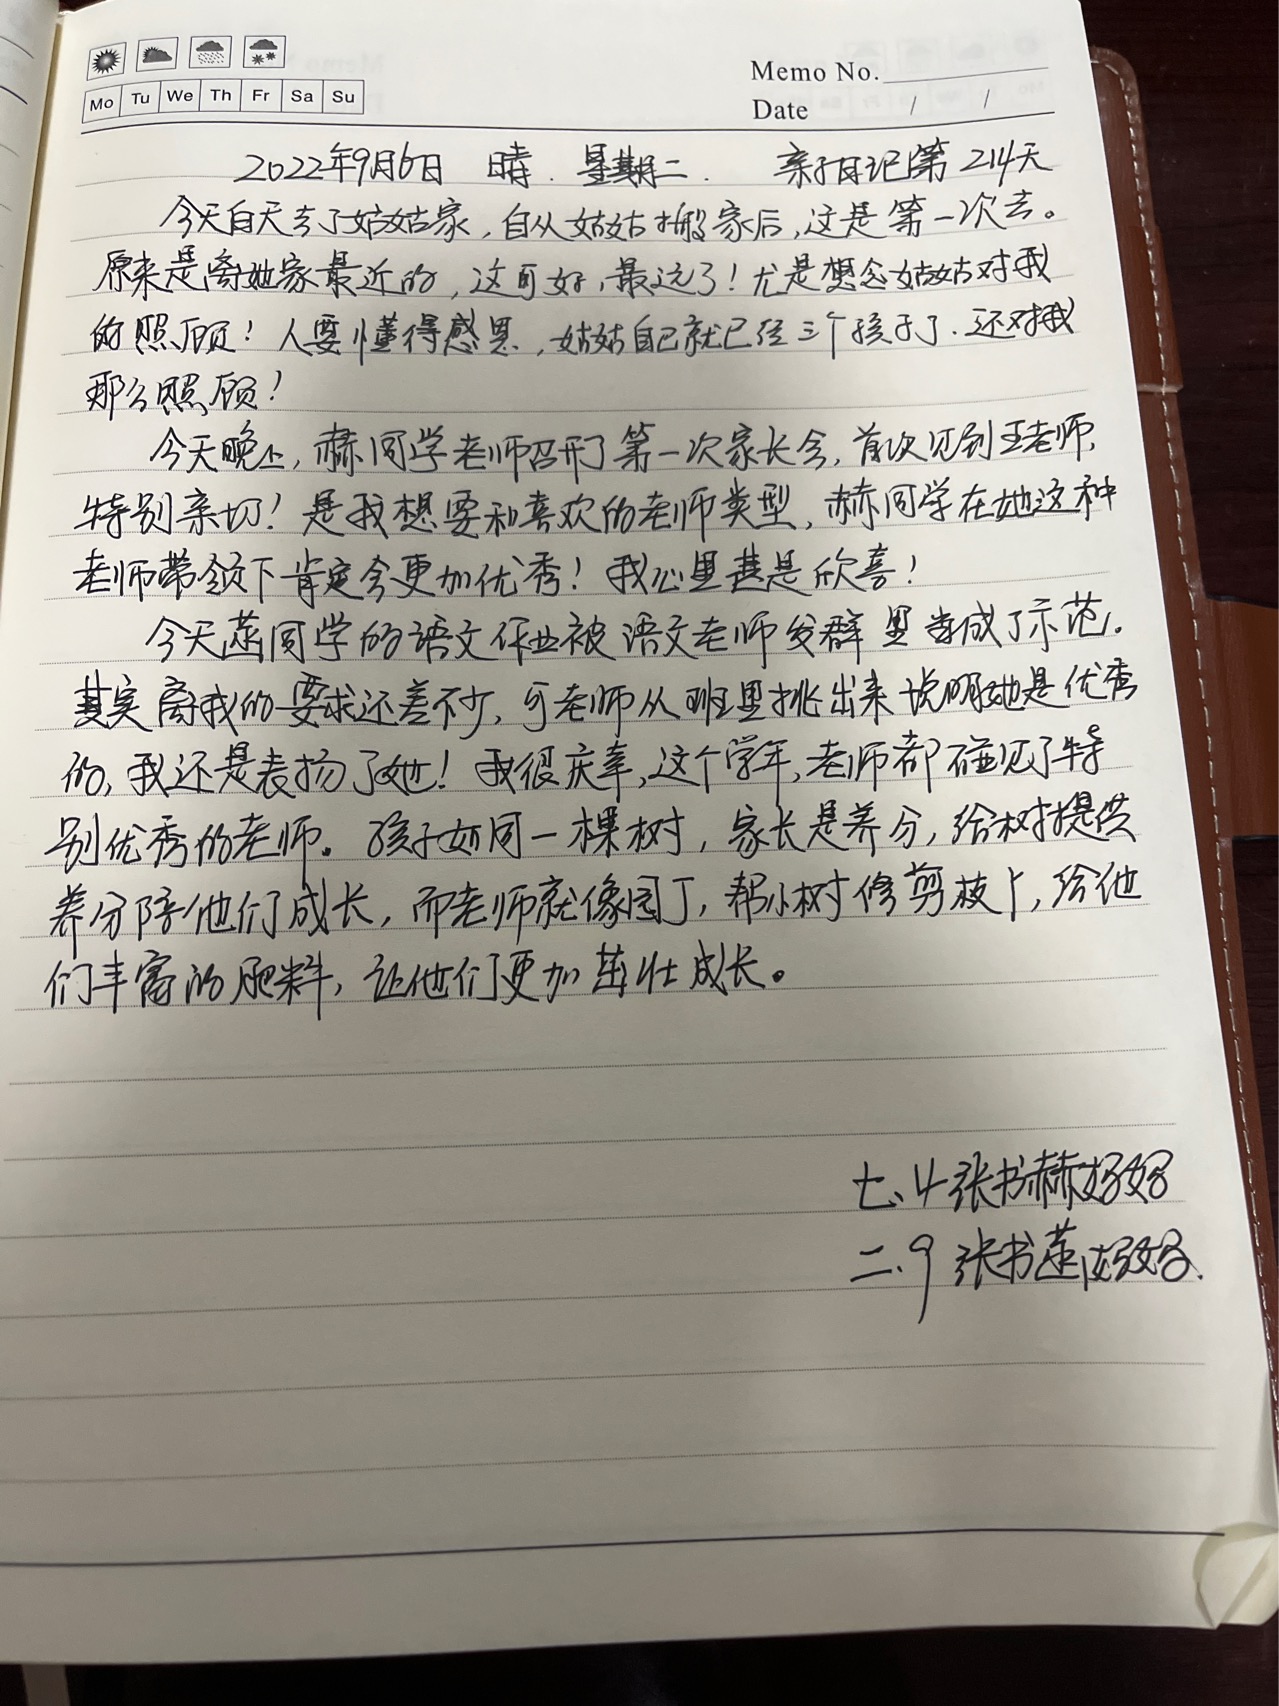 Mo Tu We Th Fr Sa Su
Memo No.
Date / /
2022年9月6日 晴. 星期二. 亲子日记第214天
今天白天去了姑姑家,自从姑姑搬家后,这是第一次去。
原来是离她家最近的,这可好,最远了!尤是想念姑姑对我
的照顾!人要懂得感恩,姑姑自己就已经三个孩子了.还对我
那么照顾!
今天晚上,赫同学老师召开了第一次家长会,首次见到王老师,
特别亲切!是我想要和喜欢的老师类型,赫同学在她这种
老师带领下肯定会更加优秀!我心里甚是欣喜!
今天菡同学的语文作业被语文老师发群里当成了示范.
其实离我的要求还差不少,可老师从班里挑出来说明她是优秀
的,我还是表扬了她!我很庆幸,这个学年,老师都碰见了特
别优秀的老师。孩子如同一棵树,家长是养分,给树提供
养分陪他们成长,而老师就像园丁,帮小树修剪枝丫,给他
们丰富的肥料,让他们更加茁壮成长。
七、4 张书赫妈妈
二.9 张书菡妈妈.